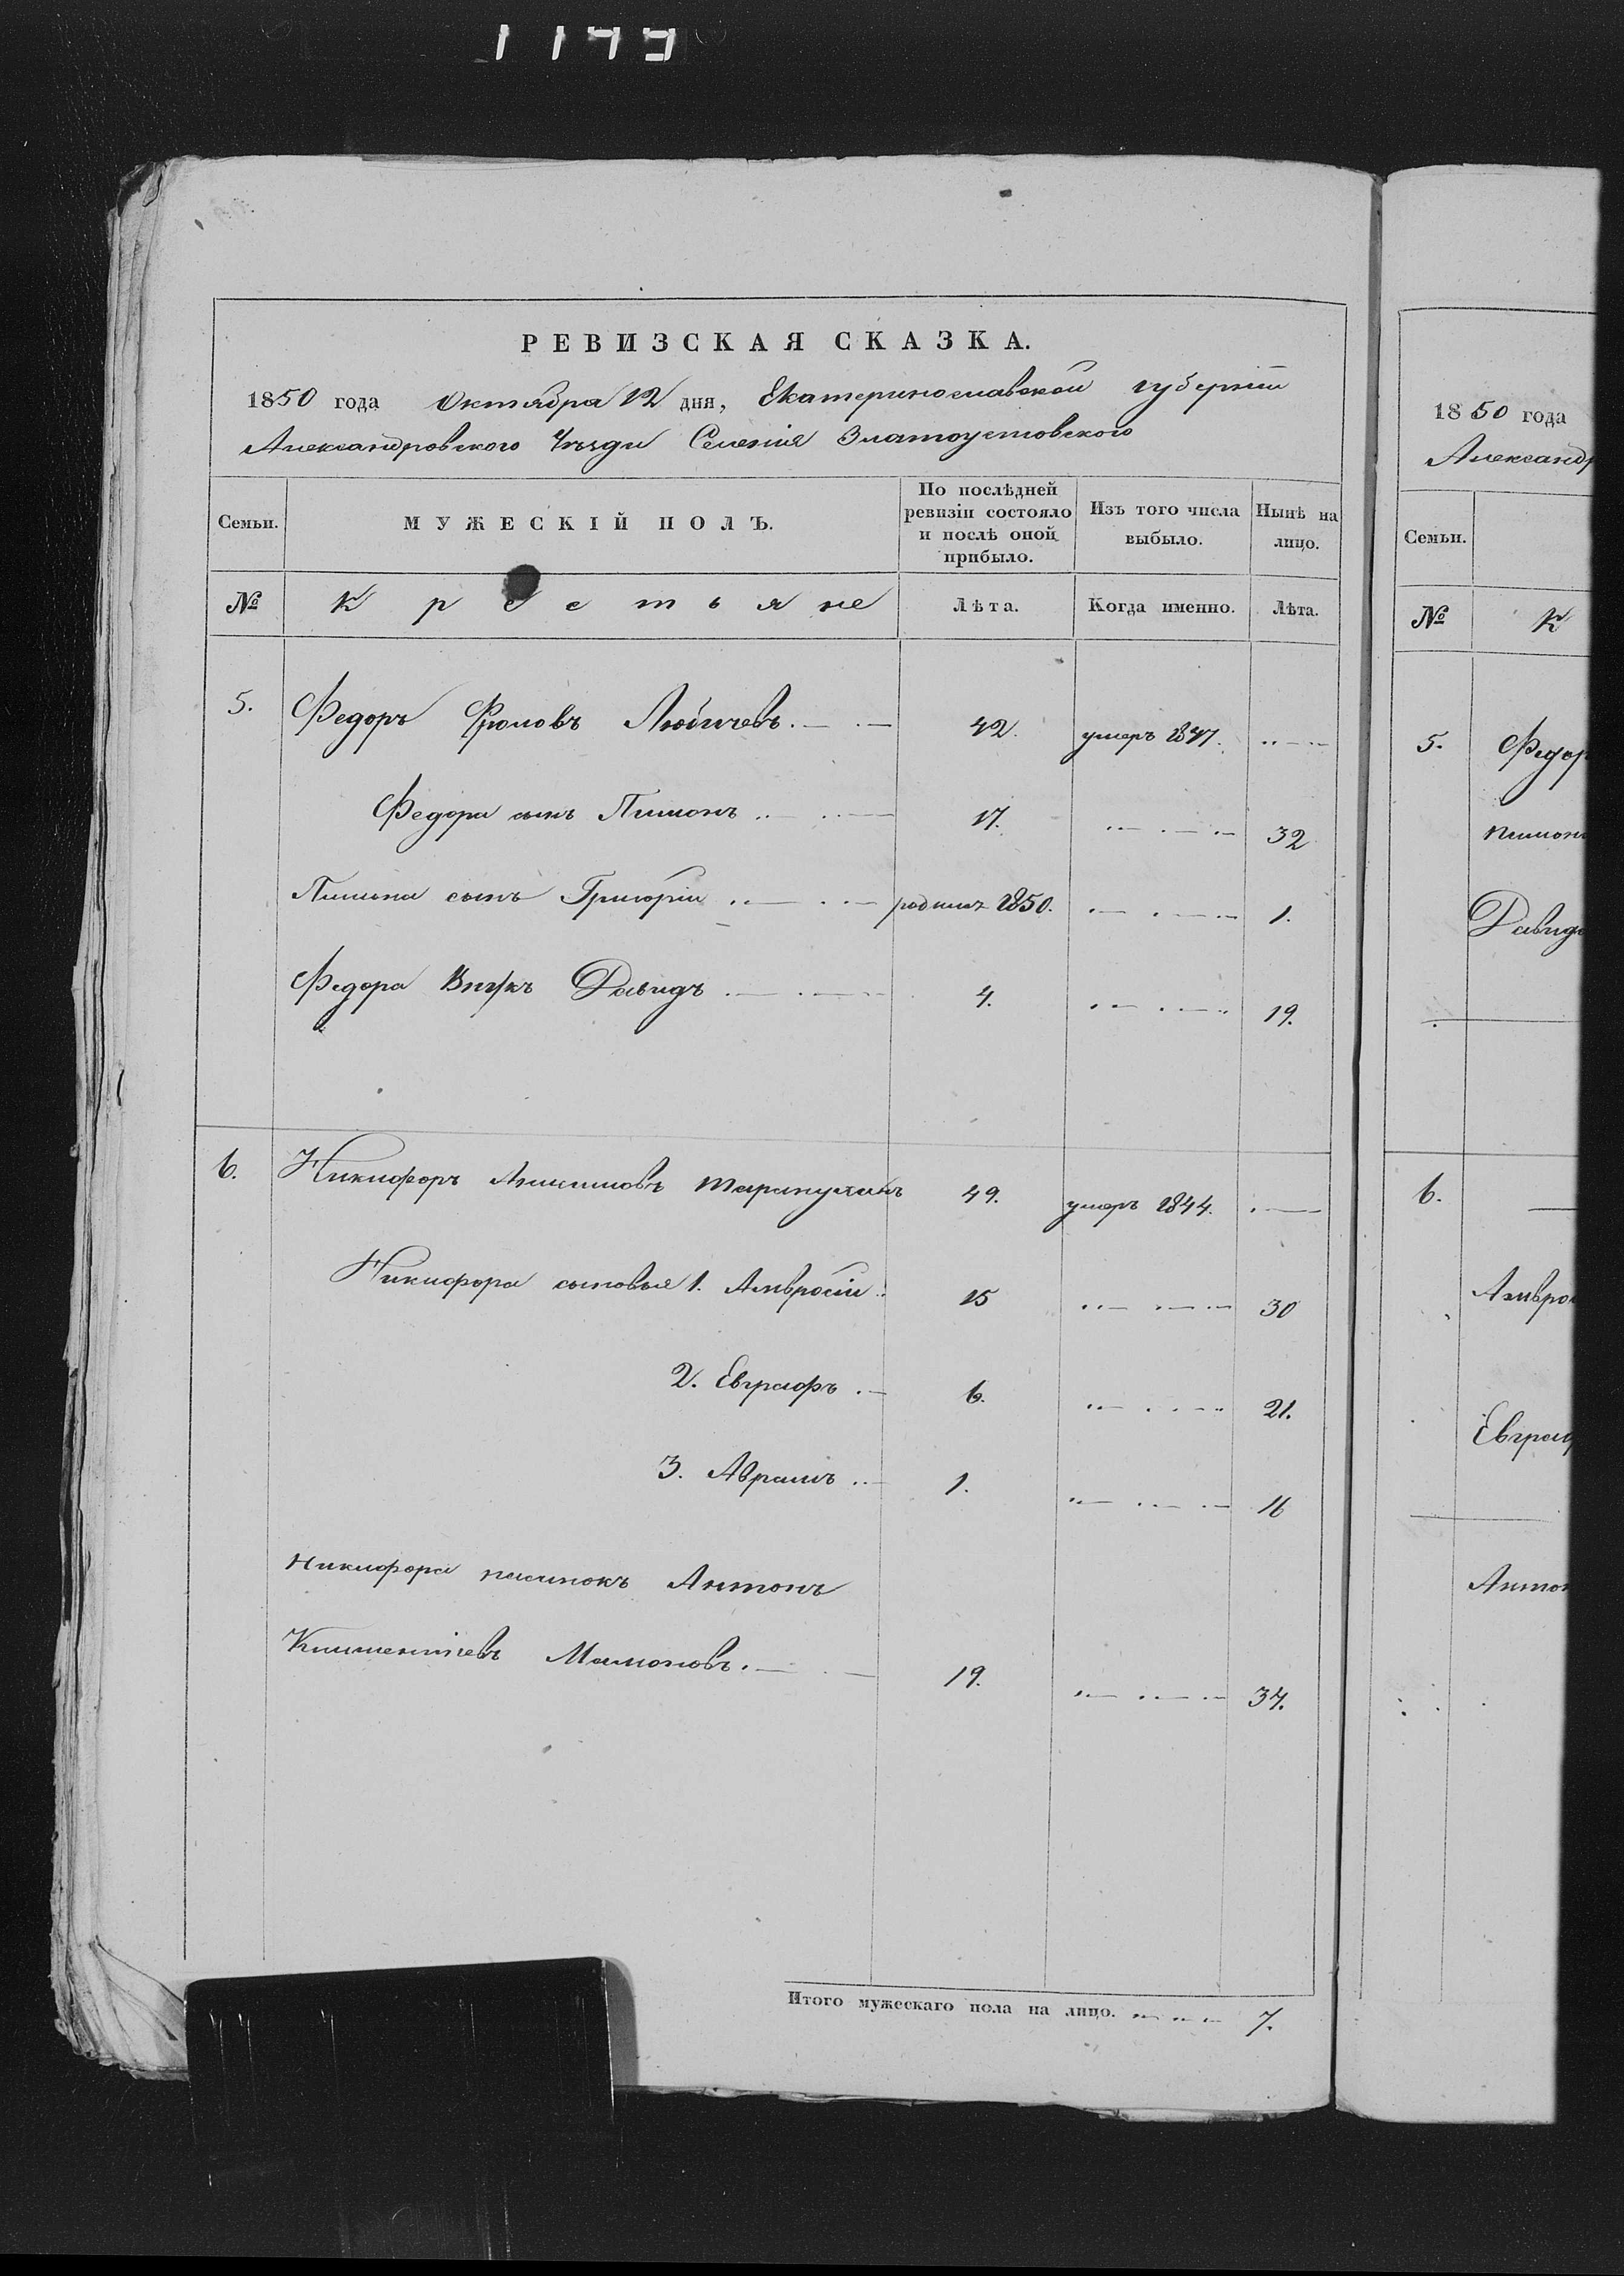 РЕВИЗСКАЯ СКАЗКА.
1850 года Октября 12 дня, Екатеринославской губерніи
Александровского Уѣзда Селенія Златоустовского
Семьи. МУЖЕСКІЙ ПОЛЪ. По послѣдней ревизіи состояло и послѣ оной прибыло. Изъ того числа выбыло. Нынѣ на лицо.
№ Крестьяне Лѣта. Когда именно. Лѣта.
5. Федоръ Фроловъ Любичевъ. 42. умеръ 1847.
Федора сынъ Пимонъ 17. 32
Пимона сынъ Григоріи родился 1850. 1.
Федора Внукъ Давидъ 4. 19.
6. Никифоръ Анисимовъ 49. умеръ 1844.
Никифора сыновья 1. Амвросіи 15 30
2. Евграфъ 6. 21.
3. Аврамъ 1. 16
Никифора пасынокъ Антонъ
Климентіевъ Мамоновъ. 19. 34.
Итого мужескаго пола на лицо. 7.
1850 года
Александр
Семьи.
№ К
5. Федор
Пимон
Давид
6.
Амврос
Евграф
Антон